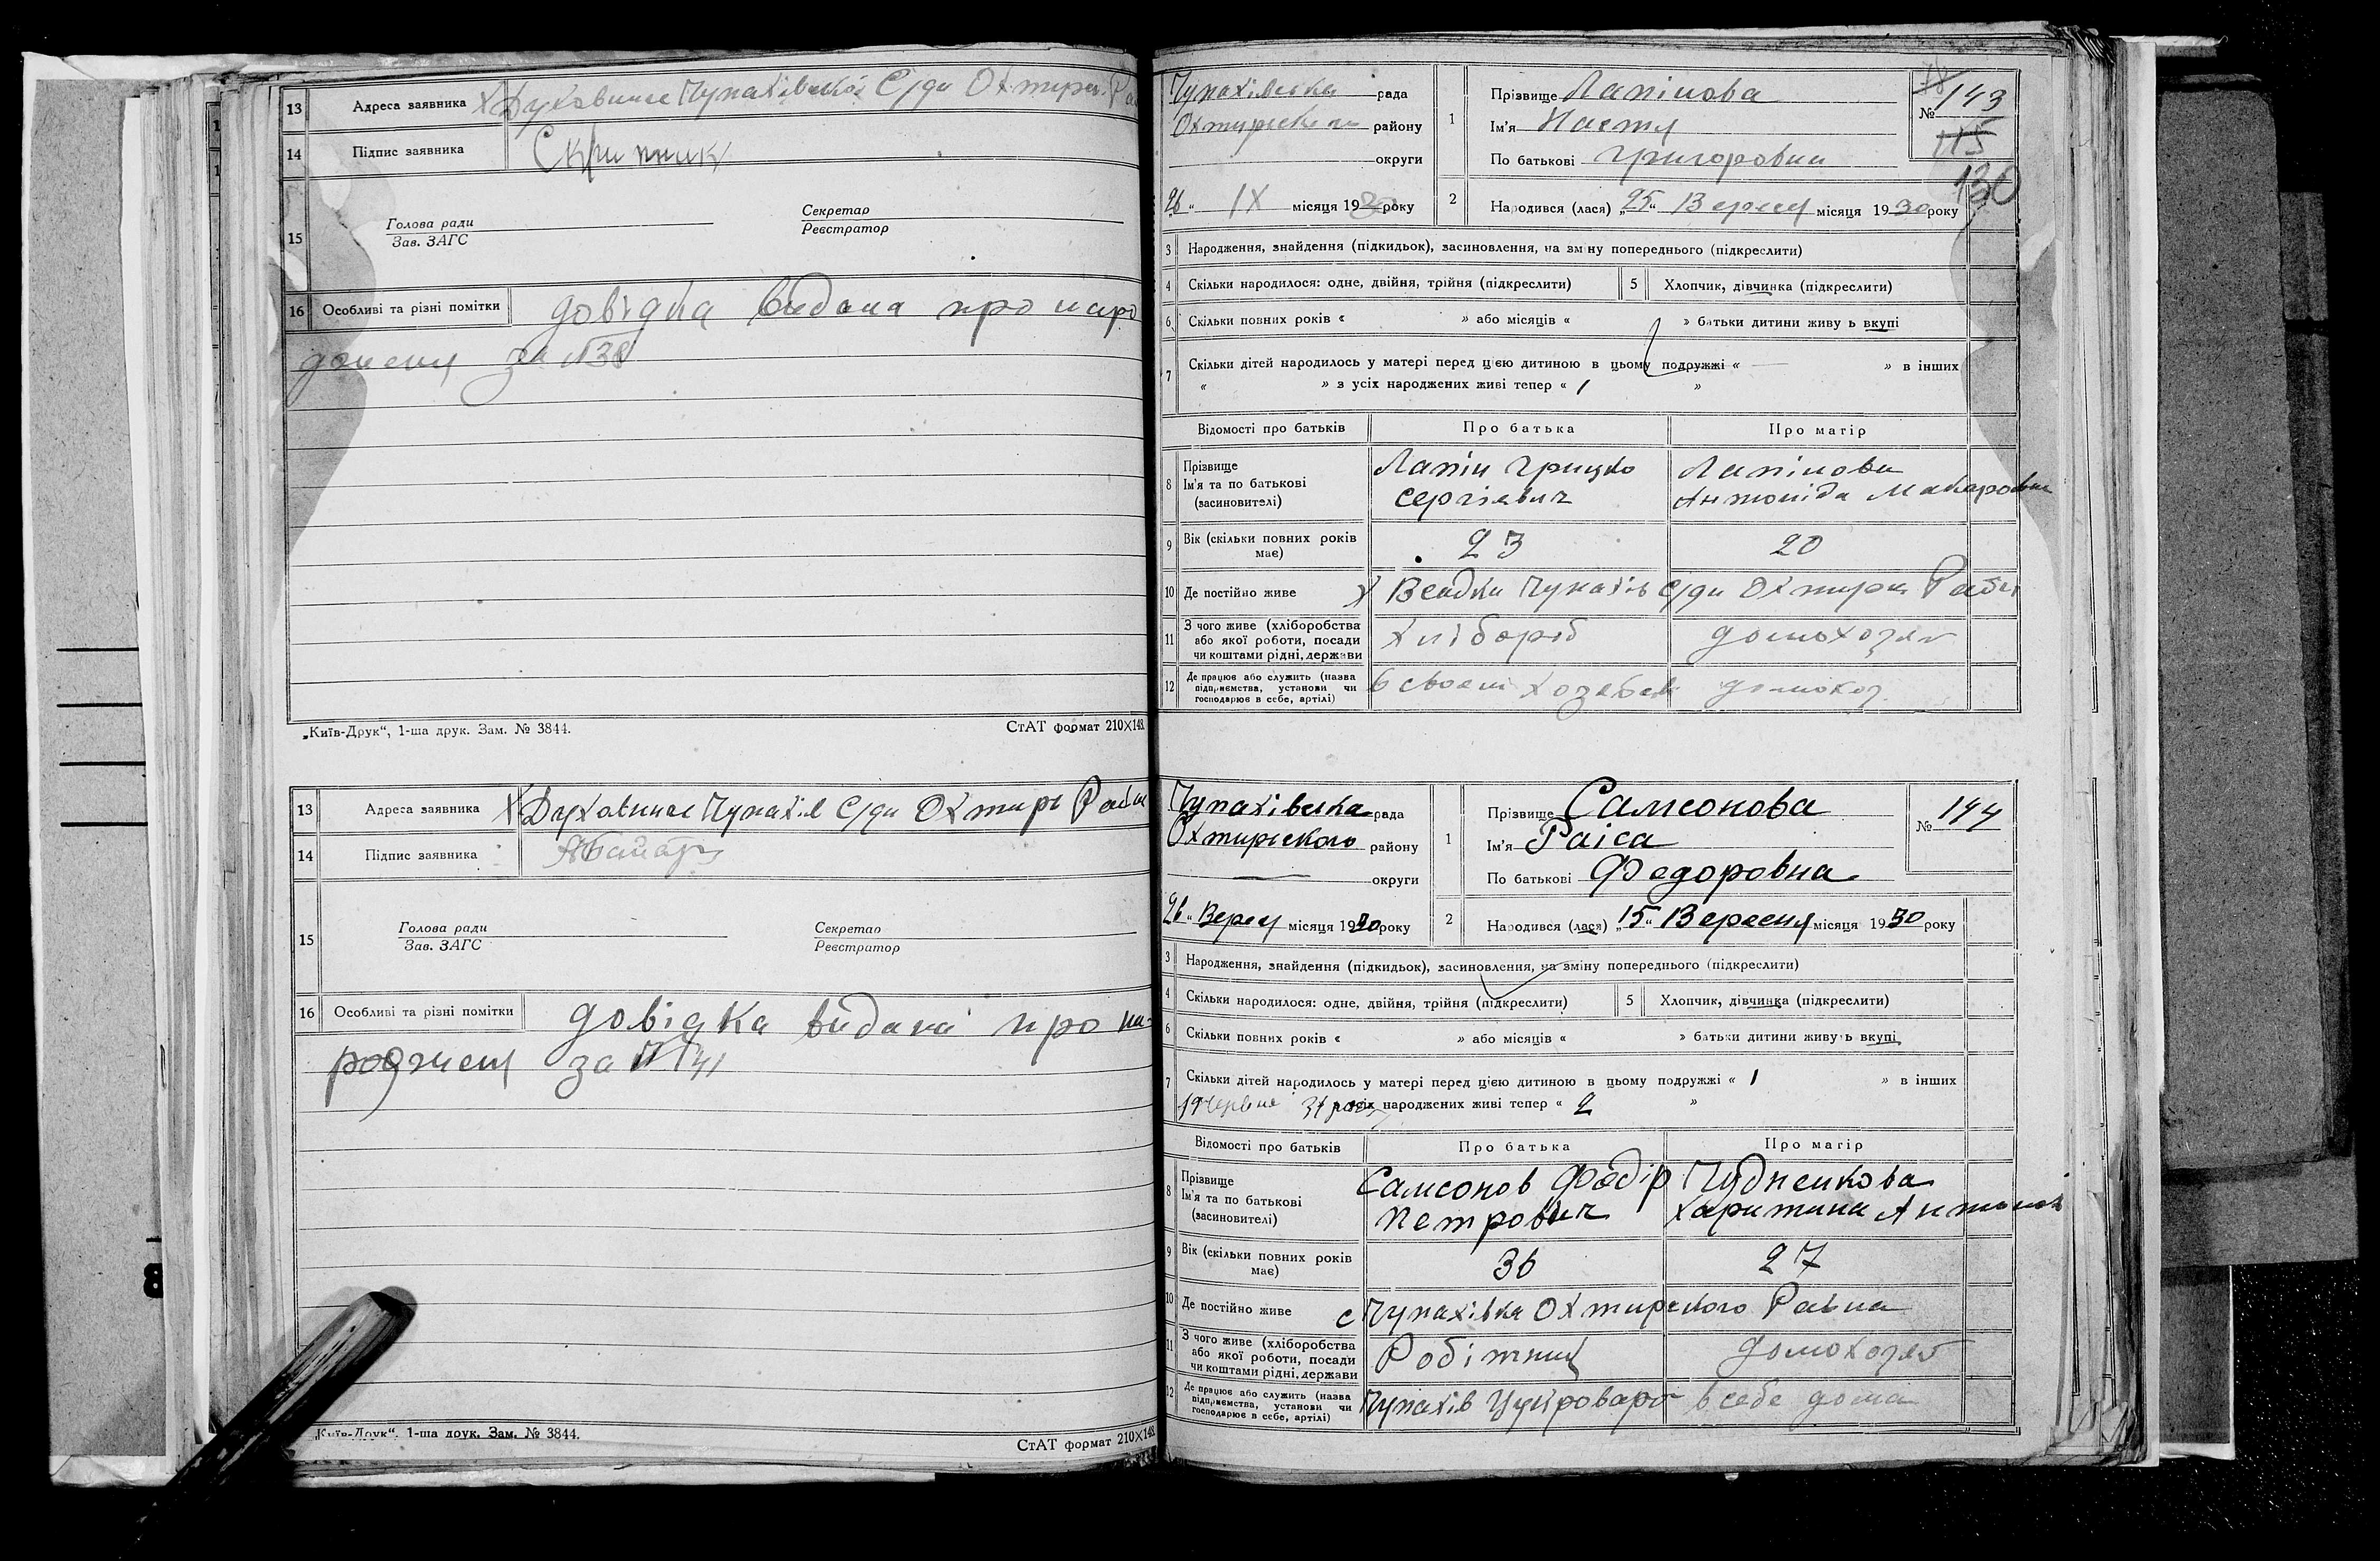 13 Адреса заявника Х Духовниче Чупахівської С/ди Охтирск.
14 Підпис заявника Скрипник
15 Голова ради Секретар
Зав. ЗАГС Реєстратор
16 Особливі та різні помітки довідка видана про наро
дження за №
„Київ-Друк“, 1-ша друк. Зам. № 3844. СтАТ формат 210×148.
13 Адреса заявника Х Духовниче Чупахів С/ди Охтирс
14 Підпис заявника
15 Голова ради Секретар
Зав. ЗАГС Реєстратор
16 Особливі та різні помітки довідка видана про на-
роджен за №
„Київ-Друк“, 1-ша друк. Зам. № 3844.
СтАТ формат 210×148
Чупахівська рада
Охтирського району
округи
26 „ IX місяця 1930 року
1 Прізвище Лапінова
Ім'я Настя
По батькові Григоровна
№ 143
115
130
2 Народився (лася) „25“ Вересня місяця 1930 року
3 Народження, знайдення (підкидьок), засиновлення, на зміну попереднього (підкреслити)
4 Скільки народилося: одне, двійня, трійня (підкреслити) 5 Хлопчик, дівчинка (підкреслити)
6 Скільки повних років « » або місяців « » батьки дитини живуть вкупі
7 Скільки дітей народилось у матері перед цією дитиною в цьому подружжі « — » в інших
« » з усіх народжених живі тепер « 1 »
Відомості про батьків Про батька Про матір
8 Прізвище Ім'я та по батькові (засновителі) Лапін Грицко Сергієвич Лапінова Антоніда Макаровна
9 Вік (скільки повних років має) 23 20
10 Де постійно живе Х Чупахів С/ди Охтирск
11 З чого живе (хліборобства або якої роботи, посади чи коштами рідні, держави Хлібороб домохозяй
12 Де працює або служить (назва підприємства, установи чи господарює в себе, артілі) в своем домохоз.
Чупахівська рада
Охтирського району
округи
26 „ Вересн місяця 1930 року
1 Прізвище Самсонова
Ім'я Раіса
По батькові Федоровна
№ 144
2 Народився (лася) „15“ Вересня місяця 1930 року
3 Народження, знайдення (підкидьок), засиновлення, на зміну попереднього (підкреслити)
4 Скільки народилося: одне, двійня, трійня (підкреслити) 5 Хлопчик, дівчинка (підкреслити)
6 Скільки повних років « » або місяців « » батьки дитини живуть вкупі
7 Скільки дітей народилось у матері перед цією дитиною в цьому подружжі « 1 » в інших
усіх народжених живі тепер « 2 »
Відомості про батьків Про батька Про матір
8 Прізвище Ім'я та по батькові (засновителі) Самсонов Федір Петрович Чудненкова Харитина Антонов
9 Вік (скільки повних років має) 36 27
10 Де постійно живе с Чупахівка Охтирского Района
11 З чого живе (хліборобства або якої роботи, посади чи коштами рідні, держави Робітник домохозяй
12 Де працює або служить (назва підприємства, установи чи господарює в себе, артілі) Чупахів Цукроваро в себе дома